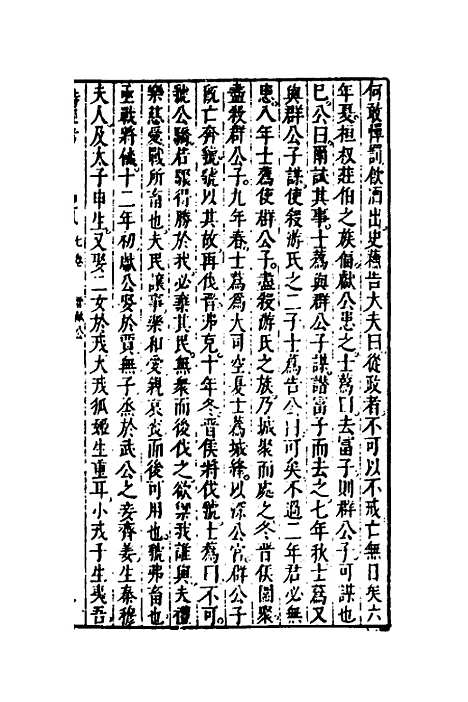 何敢憚罰飲酒出史蘇告大夫曰從政者不可以不戒亡無日矣六
年憂桓叔莊伯之族偪獻公患之士蒍曰去富子則群公子可謀也
已公曰爾試其事士蒍與群公子謀譖富子而去之七年秋士蒍又
與群公子謀使殺游氏之二子士蒍告公曰可矣不過二年君必無
患八年士蒍使群公子盡殺游氏之族乃城聚而處之冬晉侯圍聚
盡殺群公子九年春士蒍為大司空夏士蒍城絳以深公宮群公子
既亡奔虢虢以其故再伐晉弗克十年冬晉侯將伐虢士蒍曰不可
虢公驕若驟得勝於我必棄其民無衆而後伐之欲禦我誰與夫禮
樂慈愛戰所畜也夫民讓事樂和愛親哀喪而後可用也虢弗畜也
亟戰將饑十二年初獻公娶於賈無子烝於武公之妾齊姜生秦穆
夫人及太子申生又娶二女於戎大戎狐姬生重耳小戎子生夷吾
晉獻公